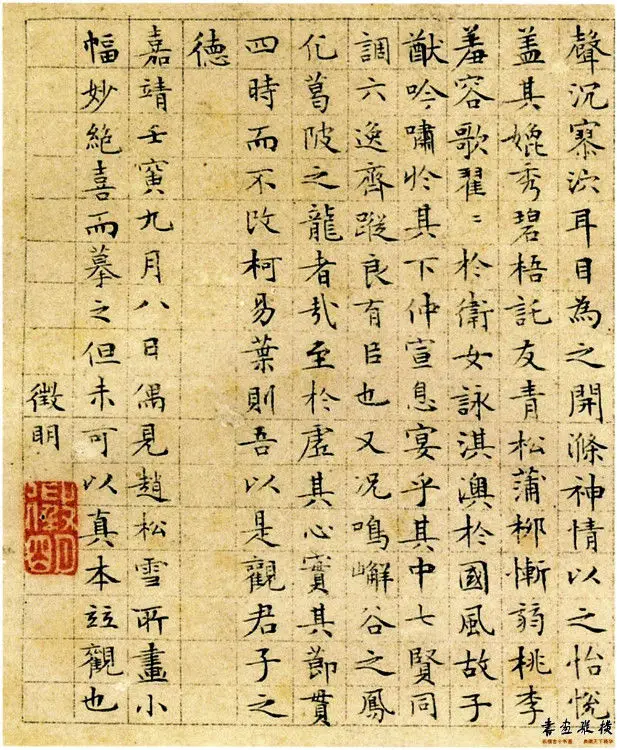 聲沉寥泬耳目為之開滌神情以之怡悅
盖其媲秀碧梧託友青松蒲柳慚蒻桃李
羞容歌翟〻於衛女詠淇澳於國風故子
猷吟嘯於其下仲宣息宴乎其中七賢同
調六逸齊蹤良有㠯也又况鳴嶰谷之鳳
化葛陂之龍者㢤至於虛其心實其節貫
四時而不改柯易葉則吾以是觀君子之
德
嘉靖壬寅九月八日偶見趙松雪所畫小
幅妙絶喜而摹之但未可以真本竝觀也
徵明
書画縱橫